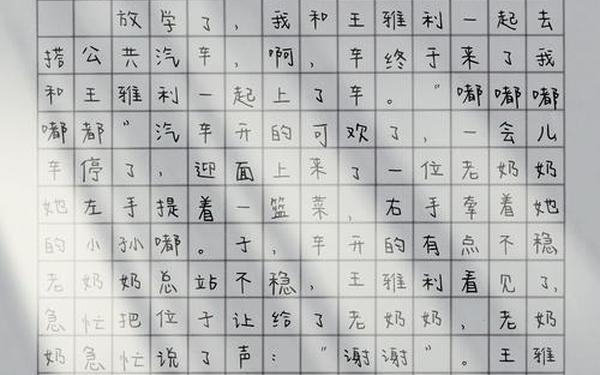 放学了，我和王雅利一起去
搭公共汽车，啊，车终于来了我
和王雅利一起上了车。“嘟嘟嘟
嘟都”汽车开的可欢了，一会儿
车停了，迎面上来了一位老奶奶
她左手提着一篮菜，右手牵着她
的小孙嘟。于，车开的有点不稳
老奶奶总站不稳，王雅利看见了，
急忙把位子让给了老奶奶，老奶
奶急忙说了声：“谢谢”。王雅